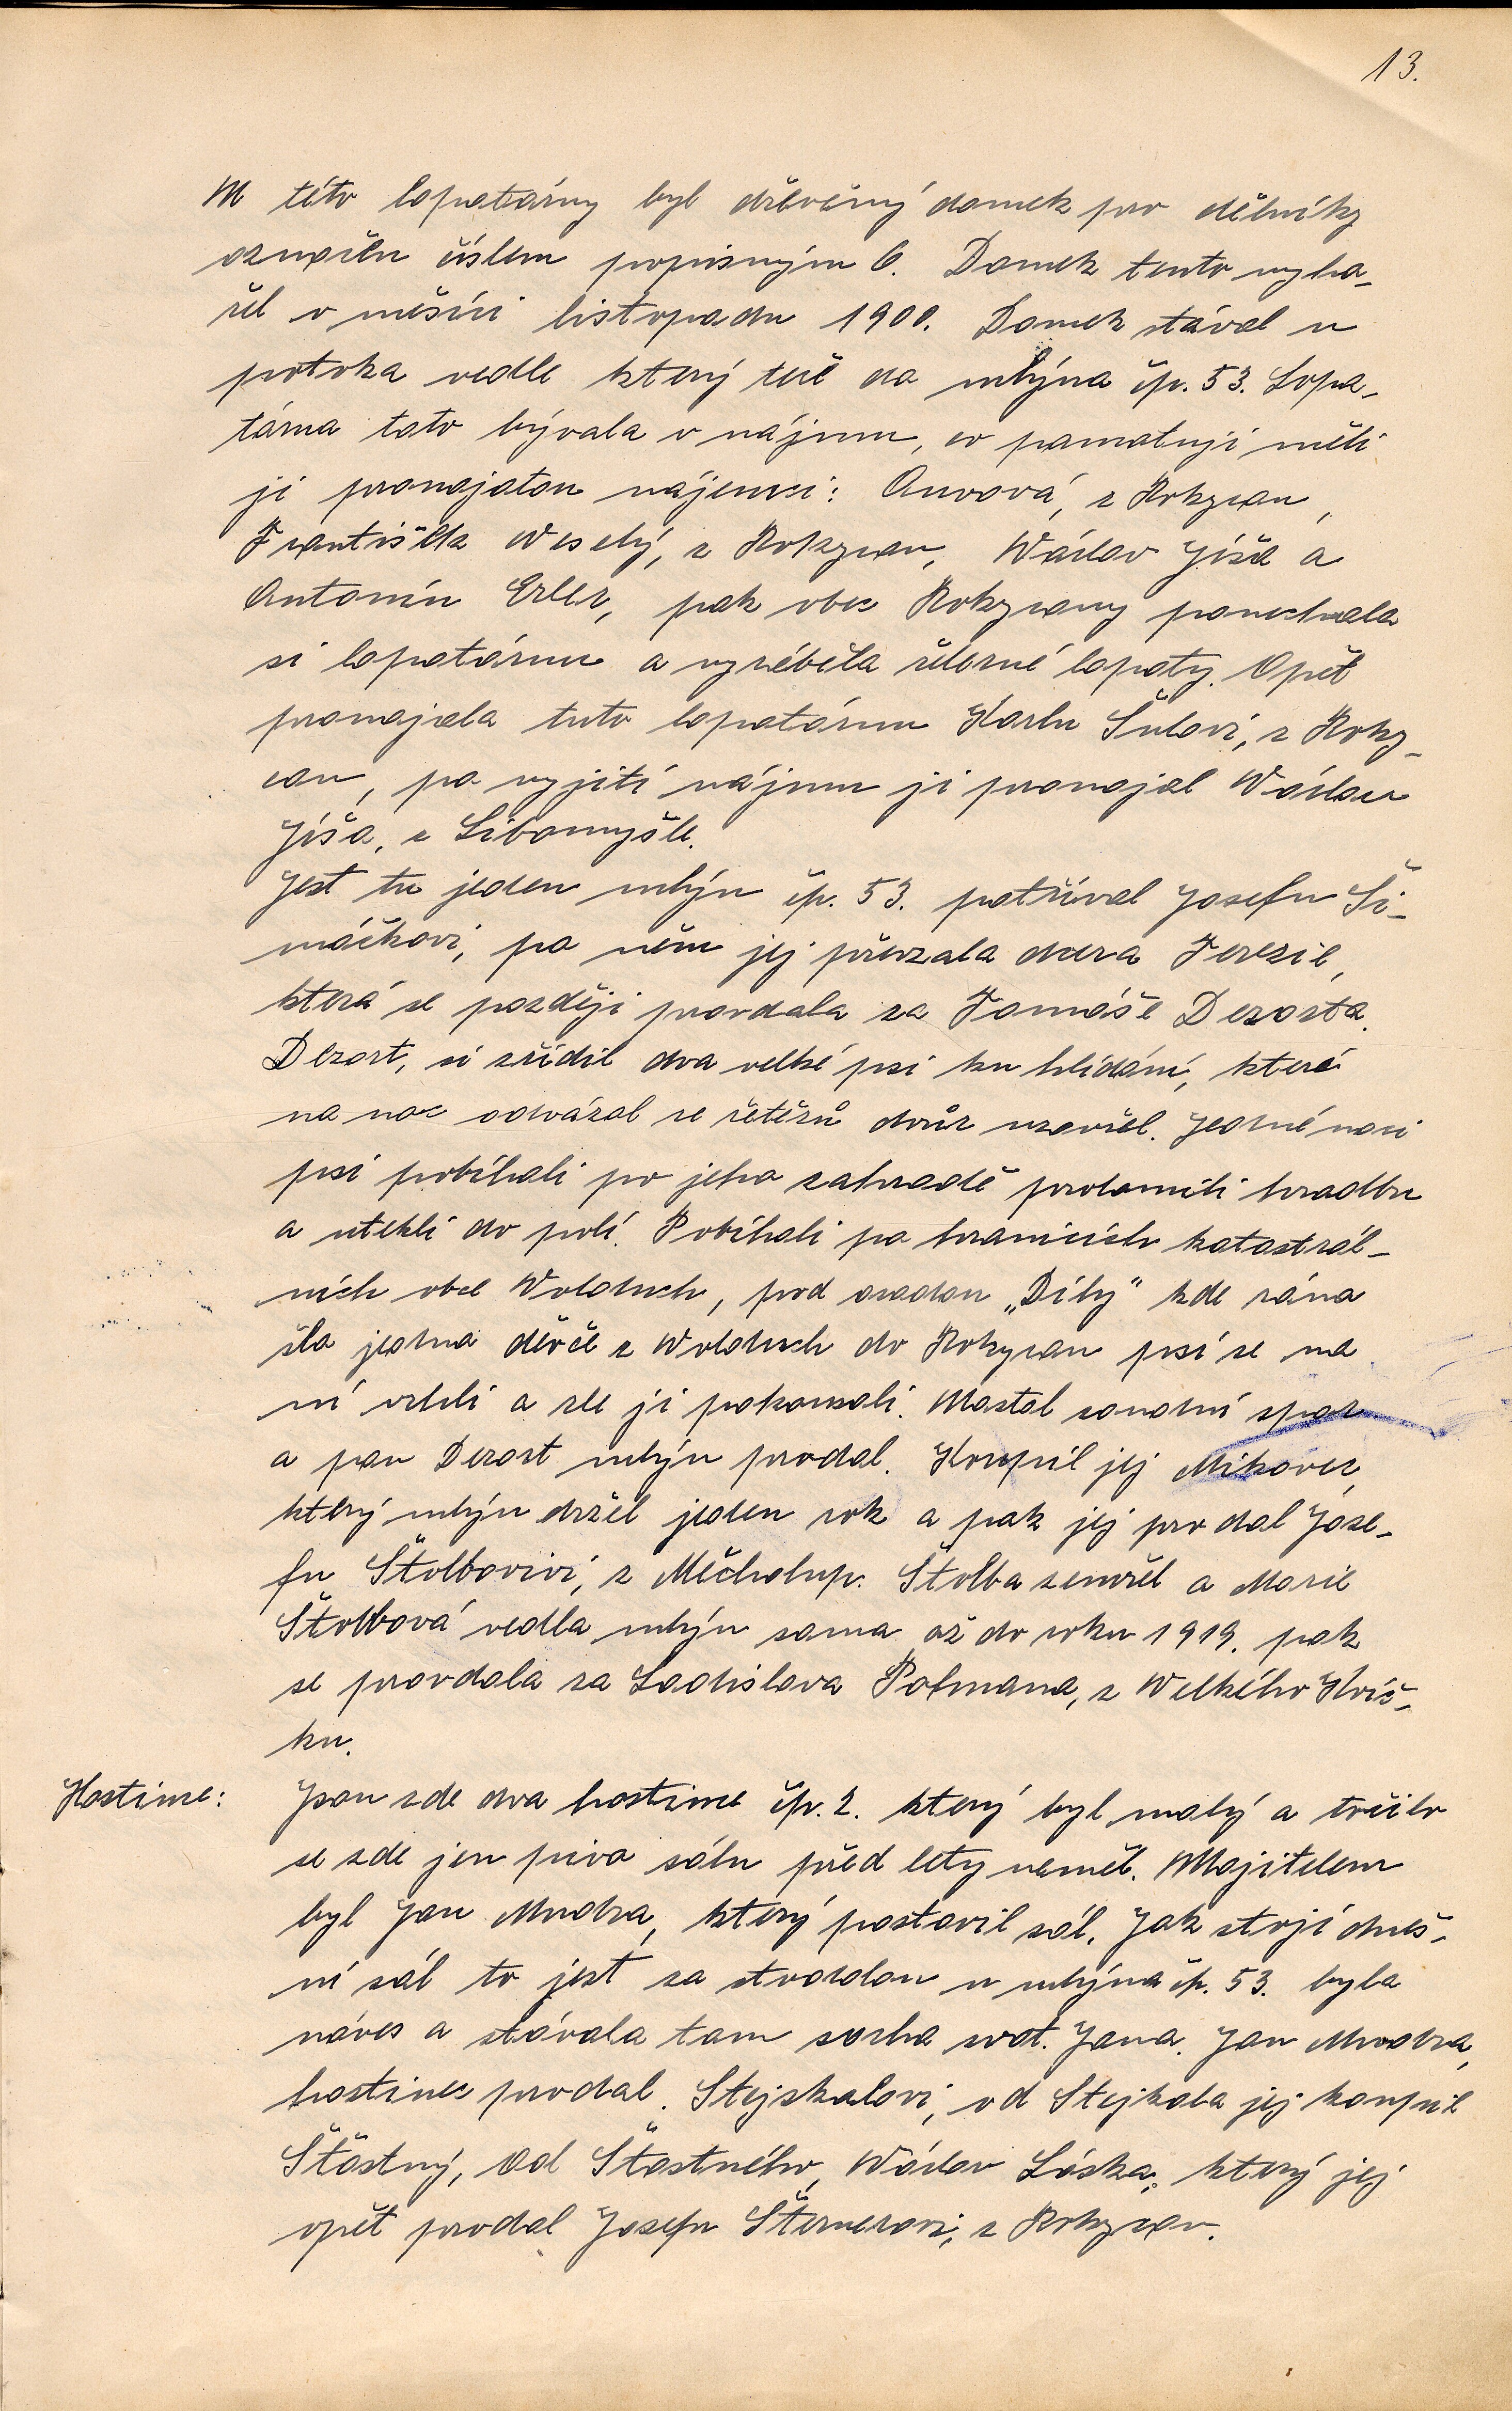 13.
U této lopatárny byl dřevěný domek pro dělníky
označen číslem popisným 6. Domek tento vyho-
řel v měsíci listopadu 1900. Domek stával u
potoka vedle který teče do mlýna čp. 53. Lopa-
tárna tato bývala v nájmu, co pamatuji měli
ji pronajatou nájemci: z Rokycan,
František Weselý, z Rokycan, Wáclav Jíša a
Antonín Erler, pak obec Rokycany ponechala
si lopatárnu a vyráběla železné lopaty. Opět
pronajala tuto lopatárnu Karlu Šulovi, z Roky-
can, po vyjití nájmu ji pronajal Wáclav
Jíša, z Libomyšle.
Jest tu jeden mlýn čp. 53. patříval Josefu Ši-
máčkovi, po něm jej převzala dcera Terezie,
která se později provdala za Tomáše Dezorta.
Dezort, si zřídil dva velké psi ku hlídání, které
na noc odvázal se řetězů dvůr uzavřel. Jedné noci
psi pobíhali po jeho zahradě prolomili hradbu
a utekli do polí. Pobíhali po hranicích katastrál-
ních obce Wolduch, pod osadou „Díly" kde rána
šla jedna děvče z Wolduch do Rokycan psi se na
ní vrhli a zle ji pokousali. Nastal soudní spor
a pan Dezort mlýn prodal. Koupil jej Mikovec,
který mlýn držel jeden rok a pak jej pro dal Jose-
fu Štolbovivi, z Měcholup. Štolba zemřel a Marie
Štolbová vedla mlýn sama až do roku 1919. pak
se provdala za Ladislava Pofmana, z Welkého
ku.
Hostince: Jsou zde dva hostince čp. 2. který byl malý a točilo
se zde jen pivo sálu před lety neměl. Majitelem
byl Jan Mudra, který postavil sál. Jak stojí dneš-
ní sál to jest za stodolou u mlýna čp. 53. byla
náves a stávala tam socha svat. Jana. Jan Mudra,
hostinec prodal. Stejskalovi, od Stejkala jej koupil
Štastný, od Štastného, Wáclav Láska, který jej
opět prodal Josefu Šternerovi, z Rokycan.